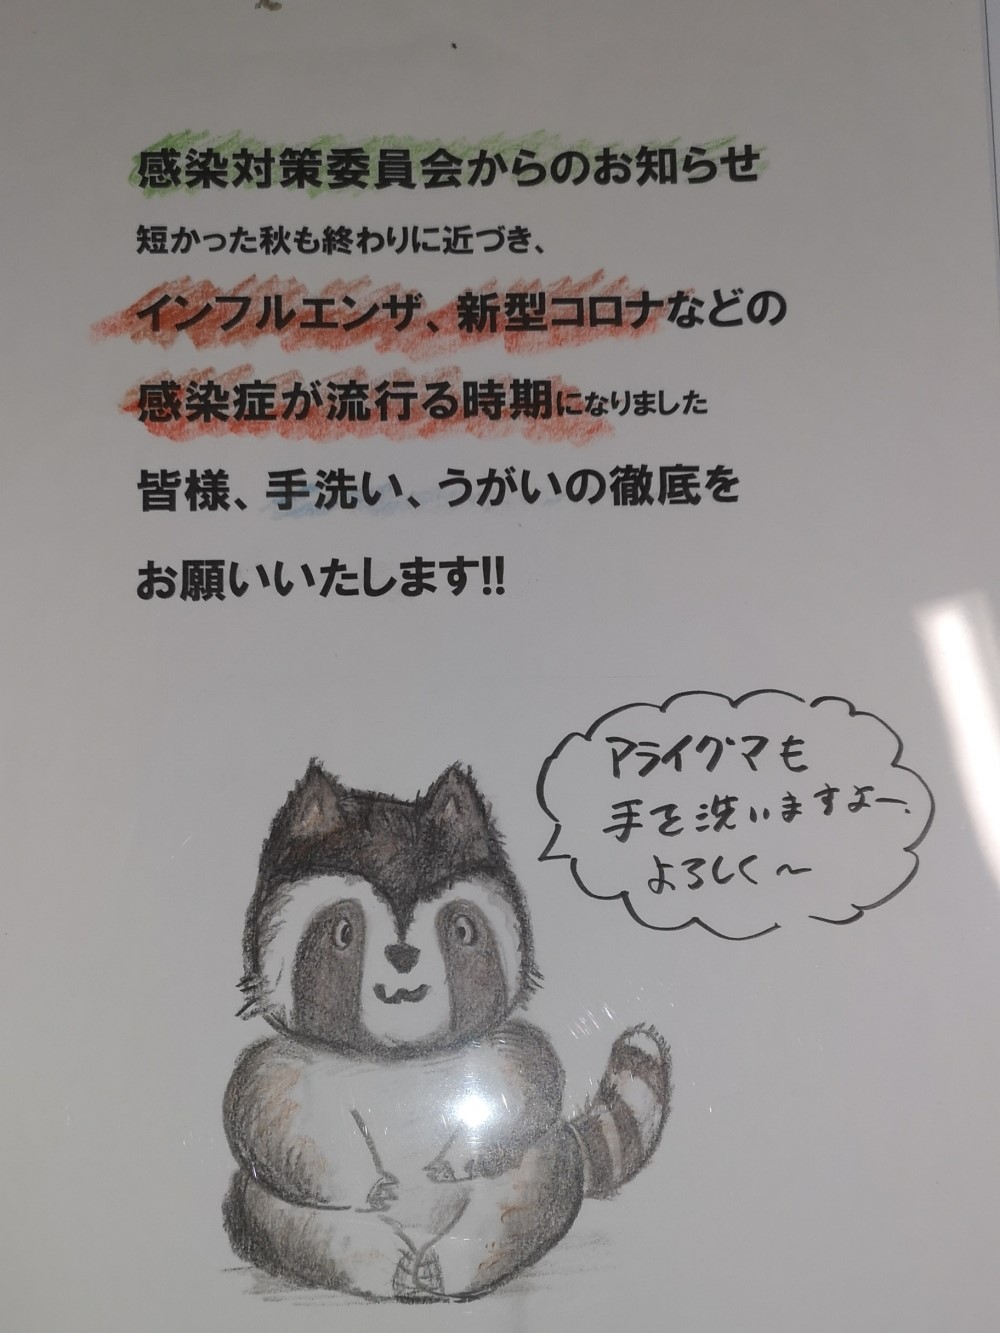 感染対策委員会からのお知らせ
短かった秋も終わりに近づき、
インフルエンザ、新型コロナなどの
感染症が流行る時期になりました
皆様、手洗い、うがいの徹底を
お願いいたします!!
アライグマも
手を洗いますよー、
よろしく〜